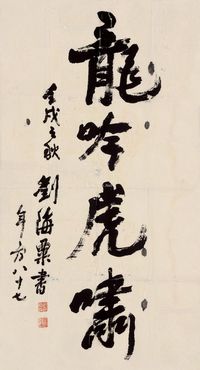 龍吟虎嘯
壬戌之秋
劉海粟書
年方八十七